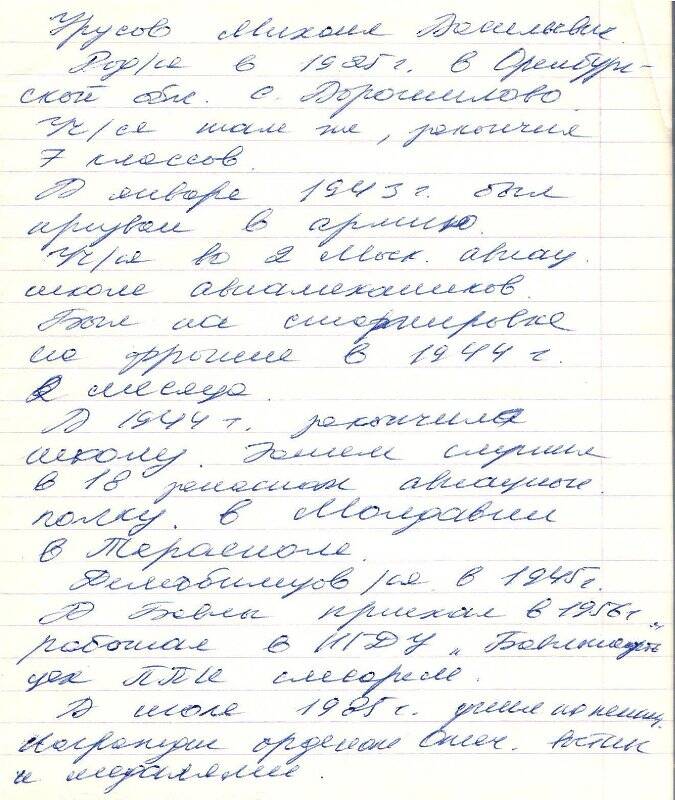 Урусов Михаил Васильевич
Род/ся в 1925 г. в Оренбург-
ской обл. с. Ворошилово.
Уч/ся там же, закончил
7 классов.
В январе 1943 г. был
призван в армию.
Уч/ся во 2 Моск. авиац.
школе авиамехаников.
Был на стажировке
на фронте в 1944 г.
2 месяца.
В 1944 г. закончил
школу. Затем служил
в 18 запасном авиацион.
полку. в Молдавии
в Терасполе.
Демобилизов/ся в 1945 г.
В Бавлы приехал в 1956 г.
работал в НГДУ „Бавлынефть"
цех ППН слесарем.
В июле 1985 г. ушел на пенсию.
Награжден орденом Отеч. войны
и медалями.